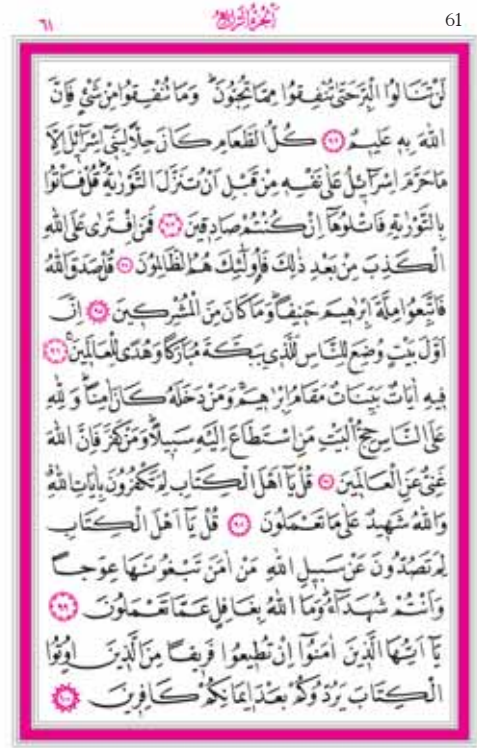 61 اَلْجُزْءُ الرَّابِعُ ٦١
لَنْ تَنَالُوا الْبِرَّ حَتّٰى تُنْفِقُوا مِمَّا تُحِبُّونَۜ وَمَا تُنْفِقُوا مِنْ شَيْءٍ فَاِنَّ
اللّٰهَ بِهٖ عَلٖيمٌ ﴿٩٢﴾ كُلُّ الطَّعَامِ كَانَ حِلًّا لِبَنٖٓي اِسْرَٓائٖلَ اِلَّا
مَا حَرَّمَ اِسْرَٓائٖلُ عَلٰى نَفْسِهٖ مِنْ قَبْلِ اَنْ تُنَزَّلَ التَّوْرٰيةُۜ قُلْ فَأْتُوا
بِالتَّوْرٰيةِ فَاتْلُوهَٓا اِنْ كُنْتُمْ صَادِقٖينَ ﴿٩٣﴾ فَمَنِ افْتَرٰى عَلَى اللّٰهِ
الْكَذِبَ مِنْ بَعْدِ ذٰلِكَ فَاُولٰٓئِكَ هُمُ الظَّالِمُونَ ﴿٩٤﴾ قُلْ صَدَقَ اللّٰهُ
فَاتَّبِعُوا مِلَّةَ اِبْرٰهٖيمَ حَنٖيفًاۜ وَمَا كَانَ مِنَ الْمُشْرِكٖينَ ﴿٩٥﴾ اِنَّ
اَوَّلَ بَيْتٍ وُضِعَ لِلنَّاسِ لَلَّذٖي بِبَكَّةَ مُبَارَكًا وَهُدًى لِلْعَالَمٖينَۚ ﴿٩٦﴾
فٖيهِ اٰيَاتٌ بَيِّنَاتٌ مَقَامُ اِبْرٰهٖيمَۚ وَمَنْ دَخَلَهُ كَانَ اٰمِنًاۜ وَلِلّٰهِ
عَلَى النَّاسِ حِجُّ الْبَيْتِ مَنِ اسْتَطَاعَ اِلَيْهِ سَبٖيلًاۜ وَمَنْ كَفَرَ فَاِنَّ اللّٰهَ
غَنِيٌّ عَنِ الْعَالَمٖينَ ﴿٩٧﴾ قُلْ يَٓا اَهْلَ الْكِتَابِ لِمَ تَكْفُرُونَ بِاٰيَاتِ اللّٰهِۗ
وَاللّٰهُ شَهٖيدٌ عَلٰى مَا تَعْمَلُونَ ﴿٩٨﴾ قُلْ يَٓا اَهْلَ الْكِتَابِ
لِمَ تَصُدُّونَ عَنْ سَبٖيلِ اللّٰهِ مَنْ اٰمَنَ تَبْغُونَهَا عِوَجًا
وَاَنْتُمْ شُهَدَٓاءُۜ وَمَا اللّٰهُ بِغَافِلٍ عَمَّا تَعْمَلُونَ ﴿٩٩﴾
يَٓا اَيُّهَا الَّذٖينَ اٰمَنُٓوا اِنْ تُطٖيعُوا فَرٖيقًا مِنَ الَّذٖينَ اُوتُوا
الْكِتَابَ يَرُدُّوكُمْ بَعْدَ اٖيمَانِكُمْ كَافِرٖينَ ﴿١٠٠﴾